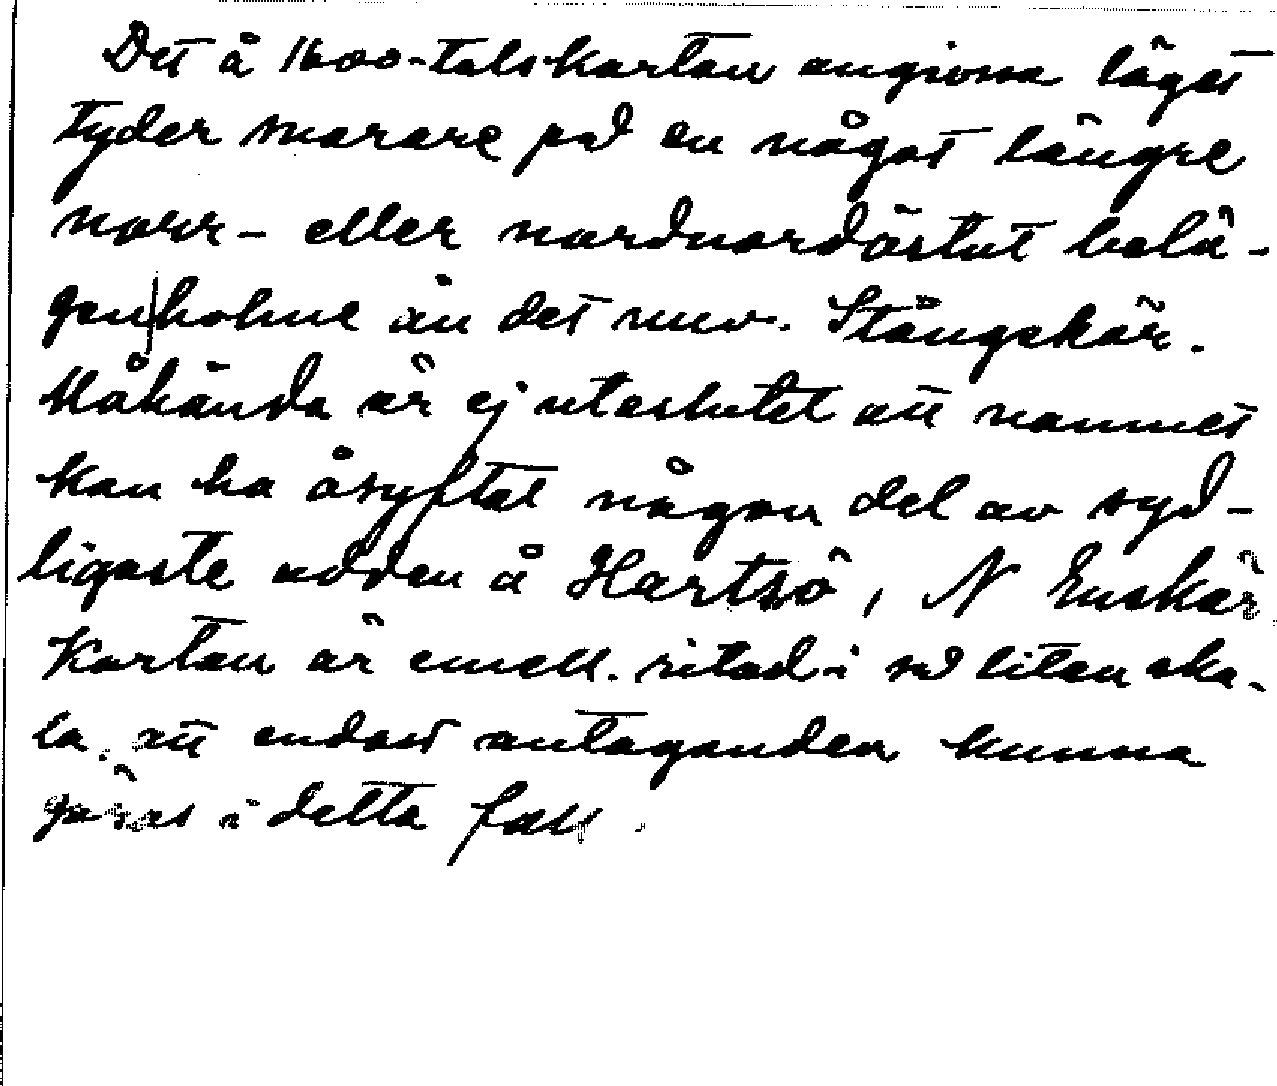 Det å 1600-talskartan angivna läget
tyder snarare på en något längre
norr- eller nordnordöstut belä-
gen holme än det nuv. Stångskär.
Måhända är ej uteslutet att namnet
kan ha åsyftat någon del av syd-
ligaste udden å Hartsö, N Enskär.
Kartan är emell. ritad i så liten ska-
la, att endast antaganden kunna
göras i detta fall.